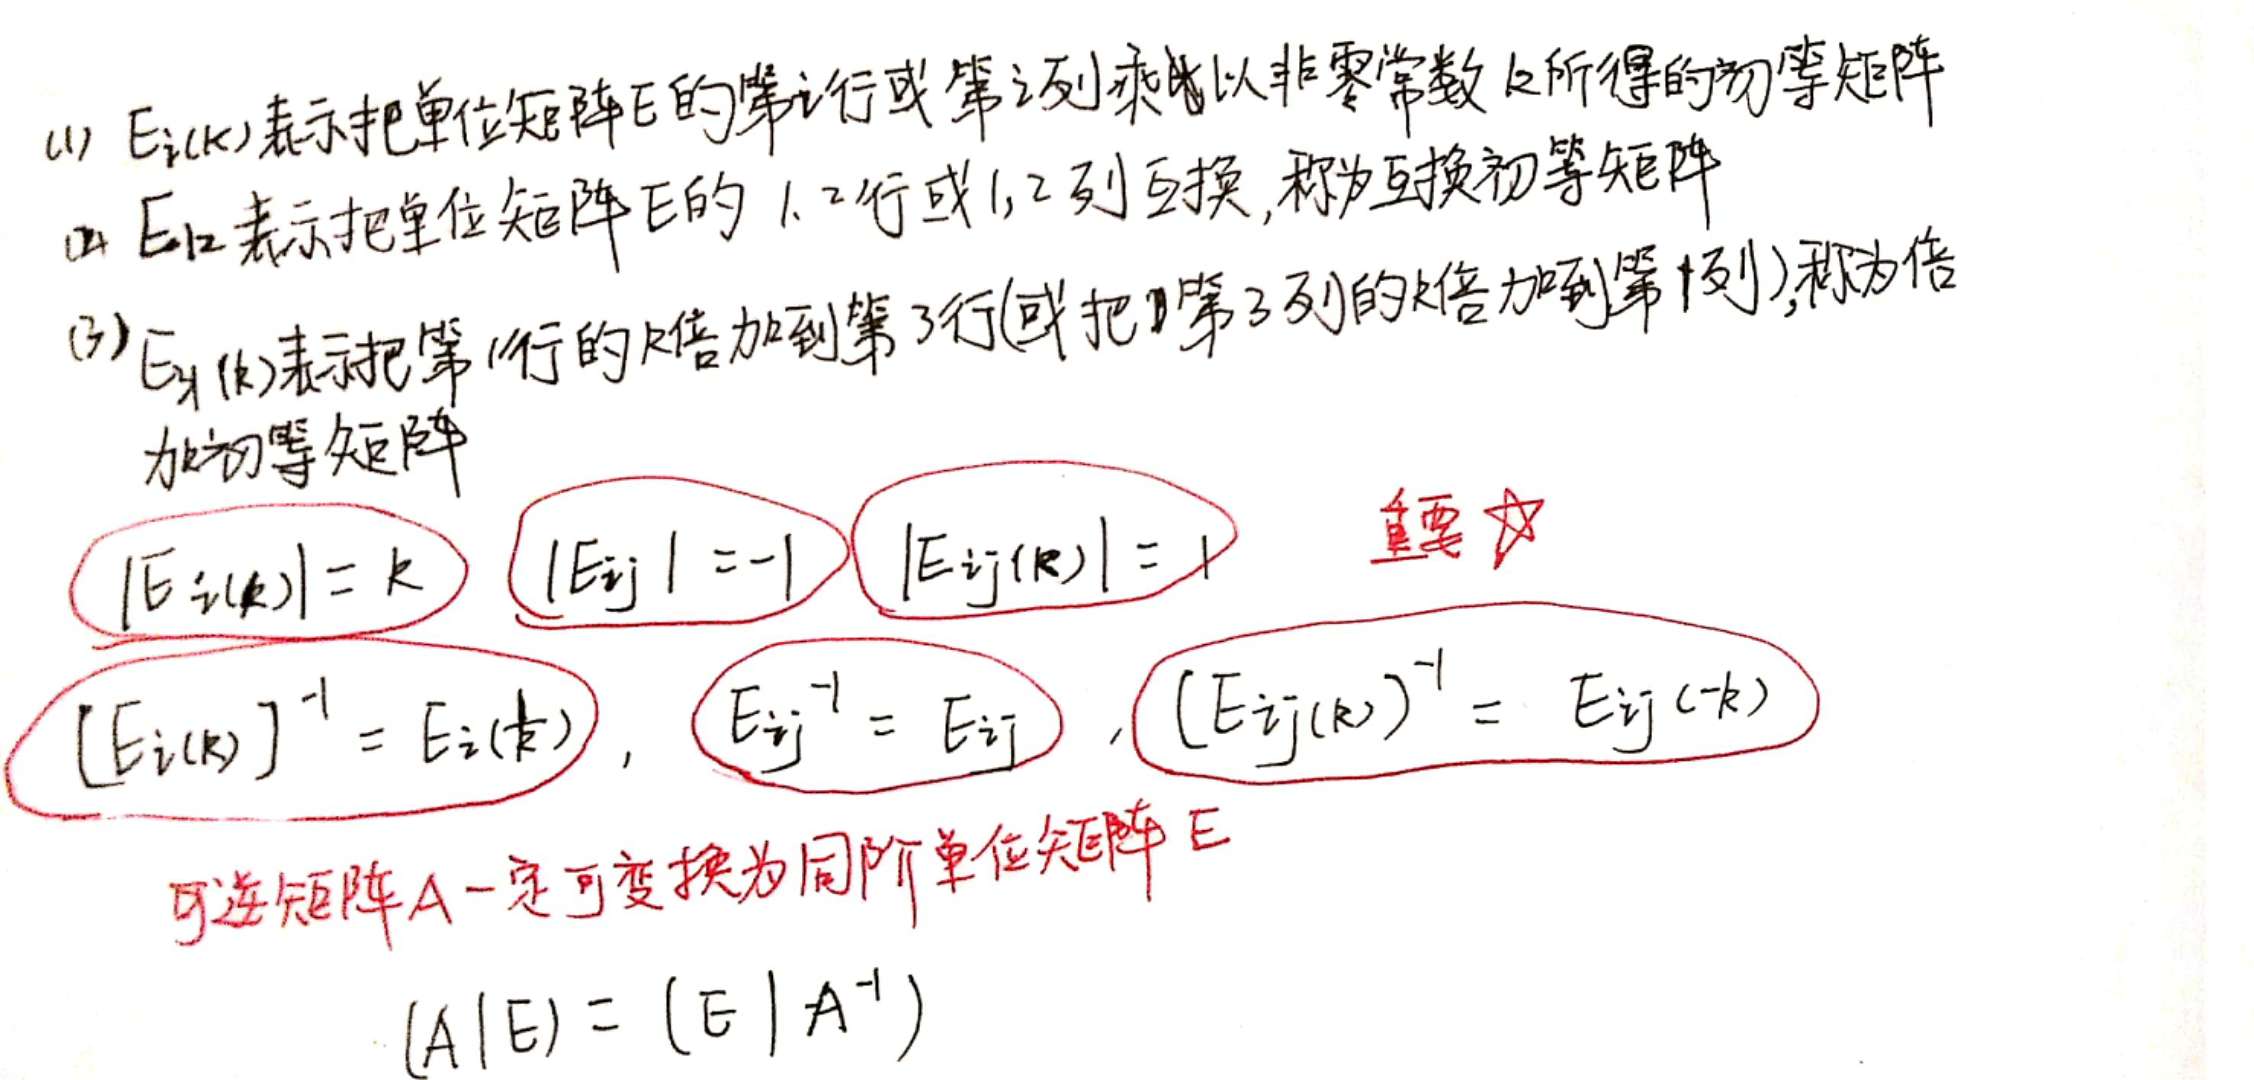 (1) Ei(k)表示把单位矩阵E的第i行或第i列乘以非零常数k所得的初等矩阵
(2) E12表示把单位矩阵E的1、2行或1,2列互换,称为互换初等矩阵
(3) E31(k)表示把第1行的k倍加到第3行(或把第3列的k倍加到第1列),称为倍
加初等矩阵
|Ei(k)| = k |Eij| = -1 |Eij(k)| = 1 重要☆
[Ei(k)]⁻¹ = Ei(1/k) , Eij⁻¹ = Eij , (Eij(k))⁻¹ = Eij(-k)
可逆矩阵A一定可变换为同阶单位矩阵E
(A|E) = (E|A⁻¹)